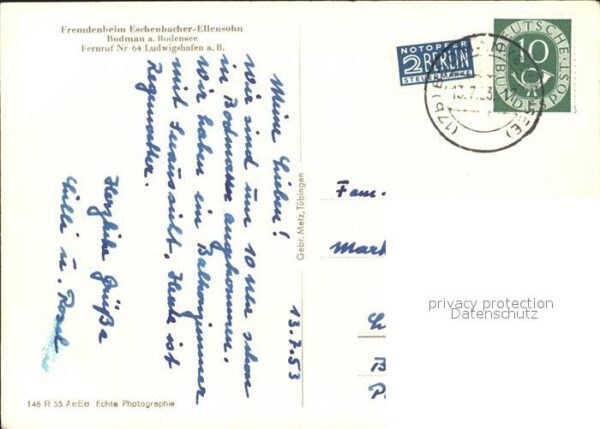 Fremdenheim Eschenbacher-Ellensohn
Bodman a. Bodensee
Fernruf Nr 64 Ludwigshafen a. B.
NOTOPFER
2 BERLIN
STEUERMARKE
DEUTSCHE
10
BUNDESPOST
13.7.53
13.7.53
Meine Lieben!
wir sind um 10 Uhr schon
in Bodman angekommen.
wir haben ein Balkonzimmer
mit Seeaussicht. Heute ist
Regenwetter.
Herzliche Grüße
u.
Gebr. Metz, Tübingen
Fam.
Mark
privacy protection
Datenschutz
146 R 55 AeEe Echte Photographie